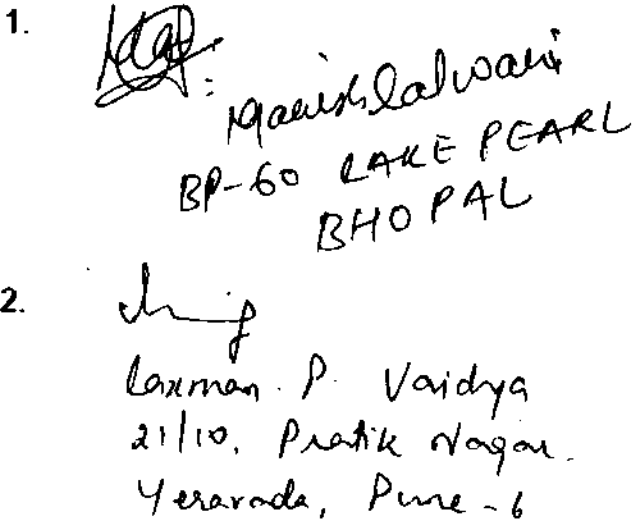 1.
Manish Lalwani
BP-60 LAKE PEARL
BHOPAL
2.
Laxman. P. Vaidya
21/10, Pratik Nagar.
Yeravada, Pune-6